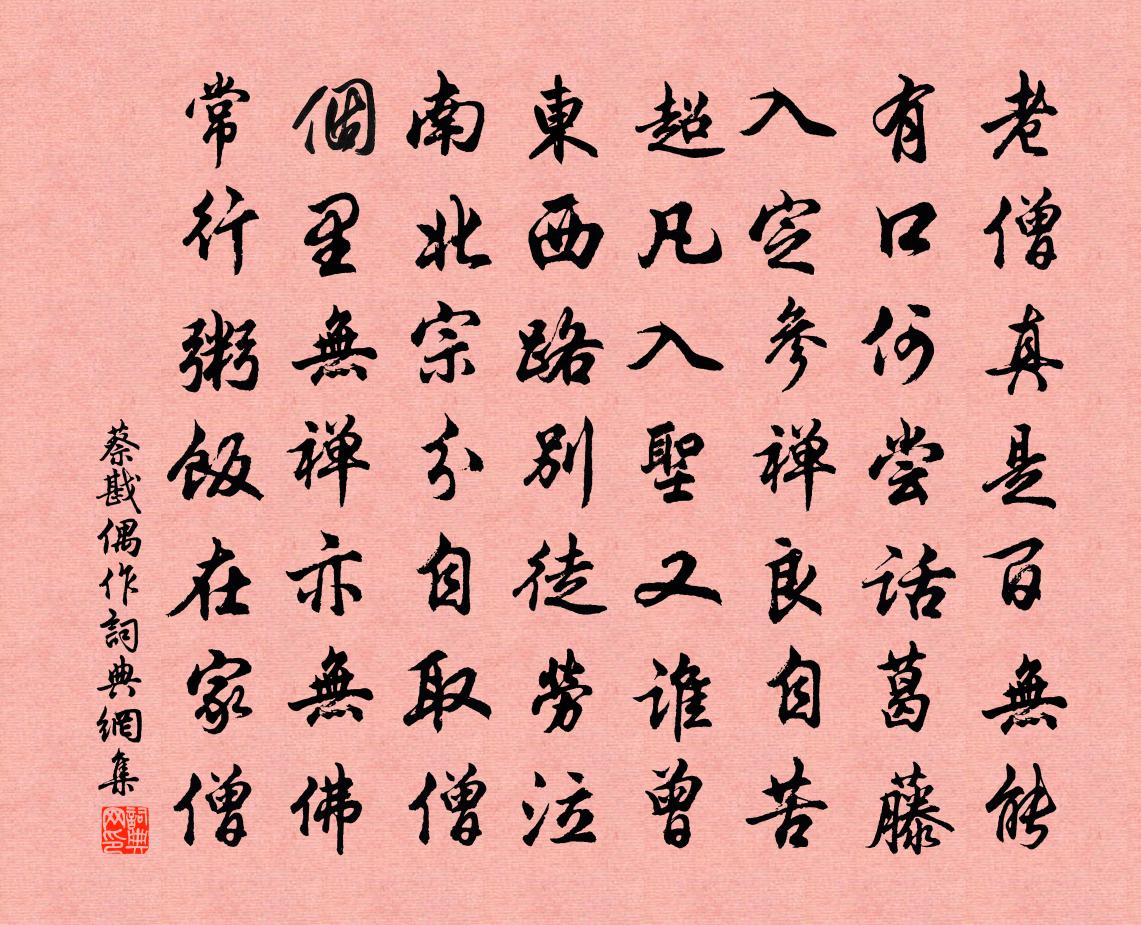 老僧真是百無能
有口何尝话葛藤
入定参禅良自苦
超凡入聖又誰曾
東西路别徒勞泣
南北宗分自取僧
個里無禅亦無佛
常行粥飯在家僧
蔡戡偶作詞典網集
詞典网印